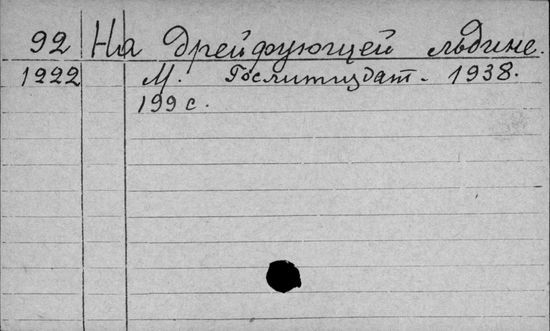 92 На дрейфующей льдине.
1222 М. Гослитиздат. 1938.
199 с.